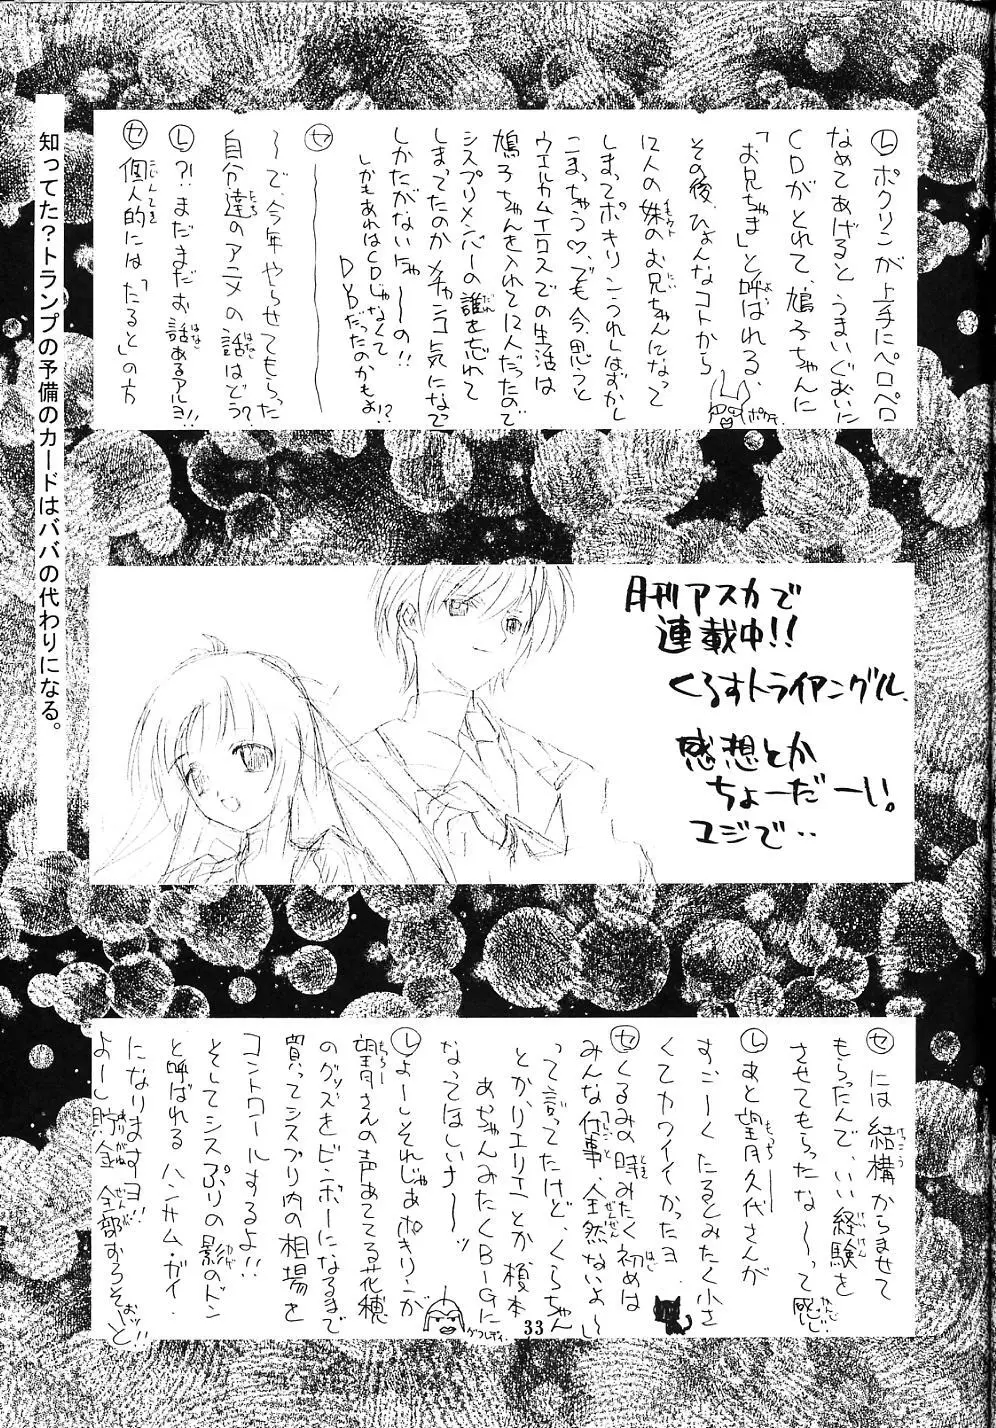 Ⓛポクリンが上手にペロペロ
なめてあげるとうまいぐあいに
CDがとれて、鳩子ちゃんに
「お兄ちゃま」と呼ばれる、
その後、ひょんなコトから
12人の妹のお兄ちゃんになって
しまってポキリンうれしはずかし
こまっちゃう♡、でも今、思うと
ウエルカムハウスでの生活は
鳩子ちゃんを入れて12人だったので
シスプリメンバーの誰を忘れて
しまってたのかメチャンコ気になって
しかたがないにゃーーの!!
しかもあれはCDじゃなくて
DVDだったのかもよ!?
ポクテ
Ⓢ
～で、今年やらせてもらった
自分達のアニメの話はどう?
Ⓛ?!まだまだお話あるアルヨ!!
Ⓢ個人的には「たると」の方
知ってた?トランプの予備のカードはババの代わりになる。
月刊アスカで
連載中!!
くろすトライアングル、
感想とか
ちょーだーい。
ユジで‥
Ⓢには結構からませて
もらったんで、いい経験を
させてもらったな～って感じ
Ⓛあと望月久代さんが
すごーくたるとみたく小さ
くてカワイイかったヨ
Ⓢくるみの時みたく初めは
みんな仕事、全然ないよ～
って言ってたけど、くらちゃん
とか、リエリエとか榎本
あっちゃんみたくBIGに
なってほしいナ～～ッ
Ⓛよーしそれじゃあポキリンが
望月さんの声あててる花穂
のグッズをビンボーになるまで
買ってシスプリ内の相場を
コントロールするよ!!
そしてシスぷりの影のドン
と呼ばれるハンサム・ガイ
になりますヨ!!
よーし貯金全部おろそっと
33